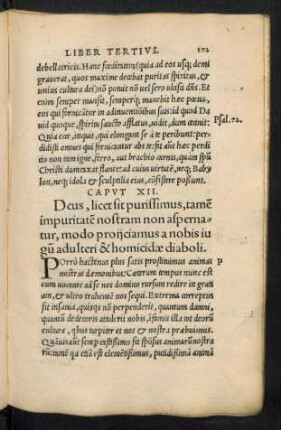 LIBER TERTIVS. 172
debellatricis. Hanc fœditatem (quia ad eos usq; demi
grauerat, quos maxime decebat puritas spiritus, &
unius cultura dei) nō ponit nō uel sero ulta dūs. Et
enim semper mansit, semperq; manebit hæc pœna,
eos qui fornicātur in adinuentiōibus suis: id quod Da
uid quoque, spiritu sancto afflatus, uidit, dum canit:
Quia ecce, inquit, qui elongant se à te peribunt: per-
Psal. 72.
didisti omnes qui fornicantur abs te: sūt aūt hæc perdi
tio non in igne, ferro, aut brachio
Christi cui uirtute, neq; Baby
lon, neq; idola & sculptilia eius, cōsistere possunt.
CAPVT XII.
Deus, licet sit purissimus, tamē
impuritatē nostram non asperna
tur, modo proijciamus a nobis iu
gū adulteri & homicidæ diaboli.
Porrò hactenus plus satis prostituimus animas
P
nostras dæmonibus: Cæterum tempus nunc est
cum uocante ad se nos domino rursum redire in grati
am, & ultro trahente nos sequi. Extrema correptus
sit insania, quisq; nō perpenderit, quantum damni,
quantū dedecoris attulerit nobis, insimilla deorū
cultura, qbus turpiter et nos & nostra præbuimus.
Quāuis aūt sempestissimo sit spōsus animarū nostra
rū: nunc